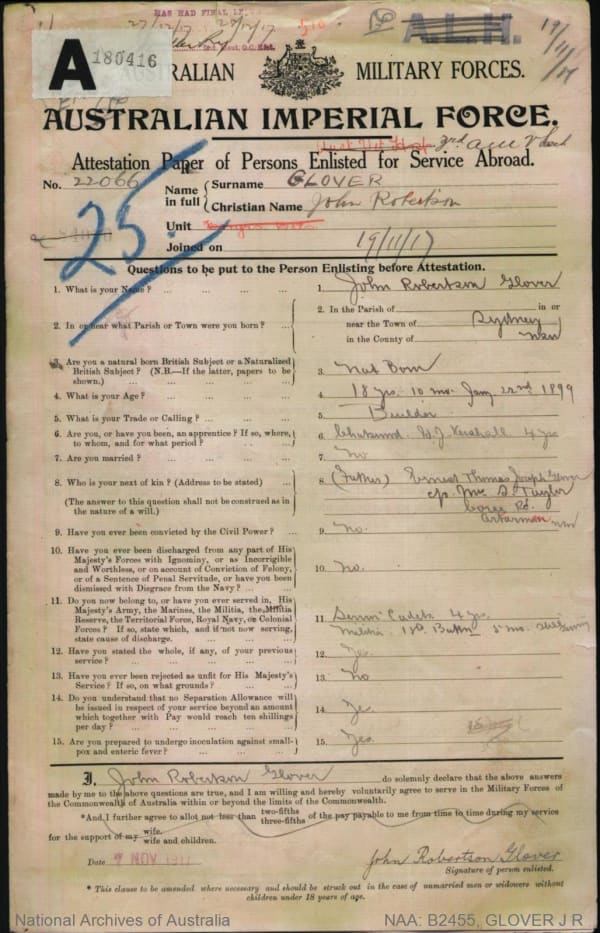 HAS HAD FINAL
27/12/17
A 180416
A.L.H.
19/11/17
AUSTRALIAN MILITARY FORCES.
AUSTRALIAN IMPERIAL FORCE.
Attestation Paper of Persons Enlisted for Service Abroad.
No. 22066
25
Name in full
Surname GLOVER
Christian Name John Robertson
Unit
Joined on 19/11/17
Questions to be put to the Person Enlisting before Attestation.
1. What is your Name? ... 1. John Robertson Glover
2. In or near what Parish or Town were you born? ... 2. In the Parish of in or
near the Town of Sydney
in the County of NSW
3. Are you a natural born British Subject or a Naturalized
British Subject? (N.B.—If the latter, papers to be
shown.) ... 3. Nat Born
4. What is your Age? ... 4. 18 yrs. 10 mo. Jany 22nd 1899
5. What is your Trade or Calling? ... 5. Builder
6. Are you, or have you been, an apprentice? If so, where,
to whom, and for what period? ... 6. 4 yrs
7. Are you married? ... 7. No
8. Who is your next of kin? (Address to be stated) ... 8. (Father) Ernest Thomas Joseph Glover
c/o Mr. S. Taylor
(The answer to this question shall not be construed as in
the nature of a will.)
Rd.
Artarmon NSW
9. Have you ever been convicted by the Civil Power? ... 9. No.
10. Have you ever been discharged from any part of His
Majesty's Forces with Ignominy, or as Incorrigible
and Worthless, or on account of Conviction of Felony,
or of a Sentence of Penal Servitude, or have you been
dismissed with Disgrace from the Navy? ... 10. No.
11. Do you now belong to, or have you ever served in, His
Majesty's Army, the Marines, the Militia, the Militia
Reserve, the Territorial Force, Royal Navy, or Colonial
Forces? If so, state which, and if not now serving,
state cause of discharge. 11. Senior Cadets 4 yrs.
Militia 5 mo. still serving
12. Have you stated the whole, if any, of your previous
service? ... 12. Yes.
13. Have you ever been rejected as unfit for His Majesty's
Service? If so, on what grounds? ... 13. No
14. Do you understand that no Separation Allowance will
be issued in respect of your service beyond an amount
which together with Pay would reach ten shillings
per day? ... 14. Ye.
15. Are you prepared to undergo inoculation against small-
pox and enteric fever? ... 15. Yes.
I, John Robertson Glover do solemnly declare that the above answers
made by me to the above questions are true, and I am willing and hereby voluntarily agree to serve in the Military Forces of
the Commonwealth of Australia within or beyond the limits of the Commonwealth.
*And I further agree to allot not less than two-fifths three-fifths of the pay payable to me from time to time during my service
for the support of my wife. wife and children.
Date 9 NOV 1917
John Robertson Glover
Signature of person enlisted.
* This clause to be amended where necessary and should be struck out in the case of unmarried men or widowers without
children under 18 years of age.
National Archives of Australia NAA: B2455, GLOVER J R